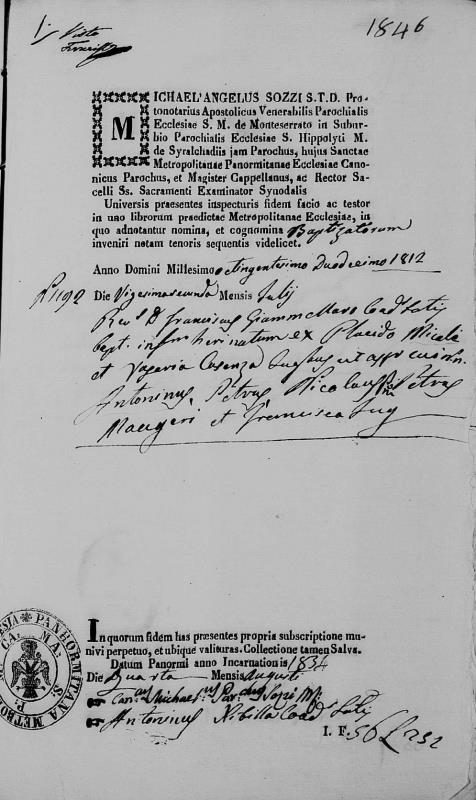 1846
Visto
MICHAEL' ANGELUS SOZZI S.T.D. Pro-
tonotarius Apostolicus Venerabilis Parochialis
Ecclesiae S. M. de Monteserrato in Subur-
bio Parochialis Ecclesiae S. Hippolyti M.
de Syralchadiis jam Parochus, hujus Sanctae
Metropolitanae Panormitanae Ecclesiae Cano-
nicus Parochus, et Magister Cappellanus, ac Rector Sa-
celli Ss. Sacramenti Examinator Synodalis
Universis praesentes inspecturis fidem facio ac testor
in uno librorum praedictae Metropolitanae Ecclesiae, in
quo adnotantur nomina, et cognomina Baptizatorum
inveniri notam tenoris sequentis videlicet.
Anno Domini Millesimo octingentesimo Duodecimo 1812
1192 Die Vigesimasecunda Mensis Julij
Rev. D. Franciscus
bapt. inf. heri natum ex Placido Micale
et Rosaria Cosenza
Antoninus, Petrus, Nicolaus Petrus
Maugeri et Francisca
In quorum fidem has præsentes propria subscriptione mu-
nivi perpetuo, et ubique valituras. Collectione tamen Salva.
Datum Panormi anno Incarnationis 1834
Die Quarta Mensis Augusti
Can. Michael Par. Sozzi
Antoninus
I. F. 56 L 232